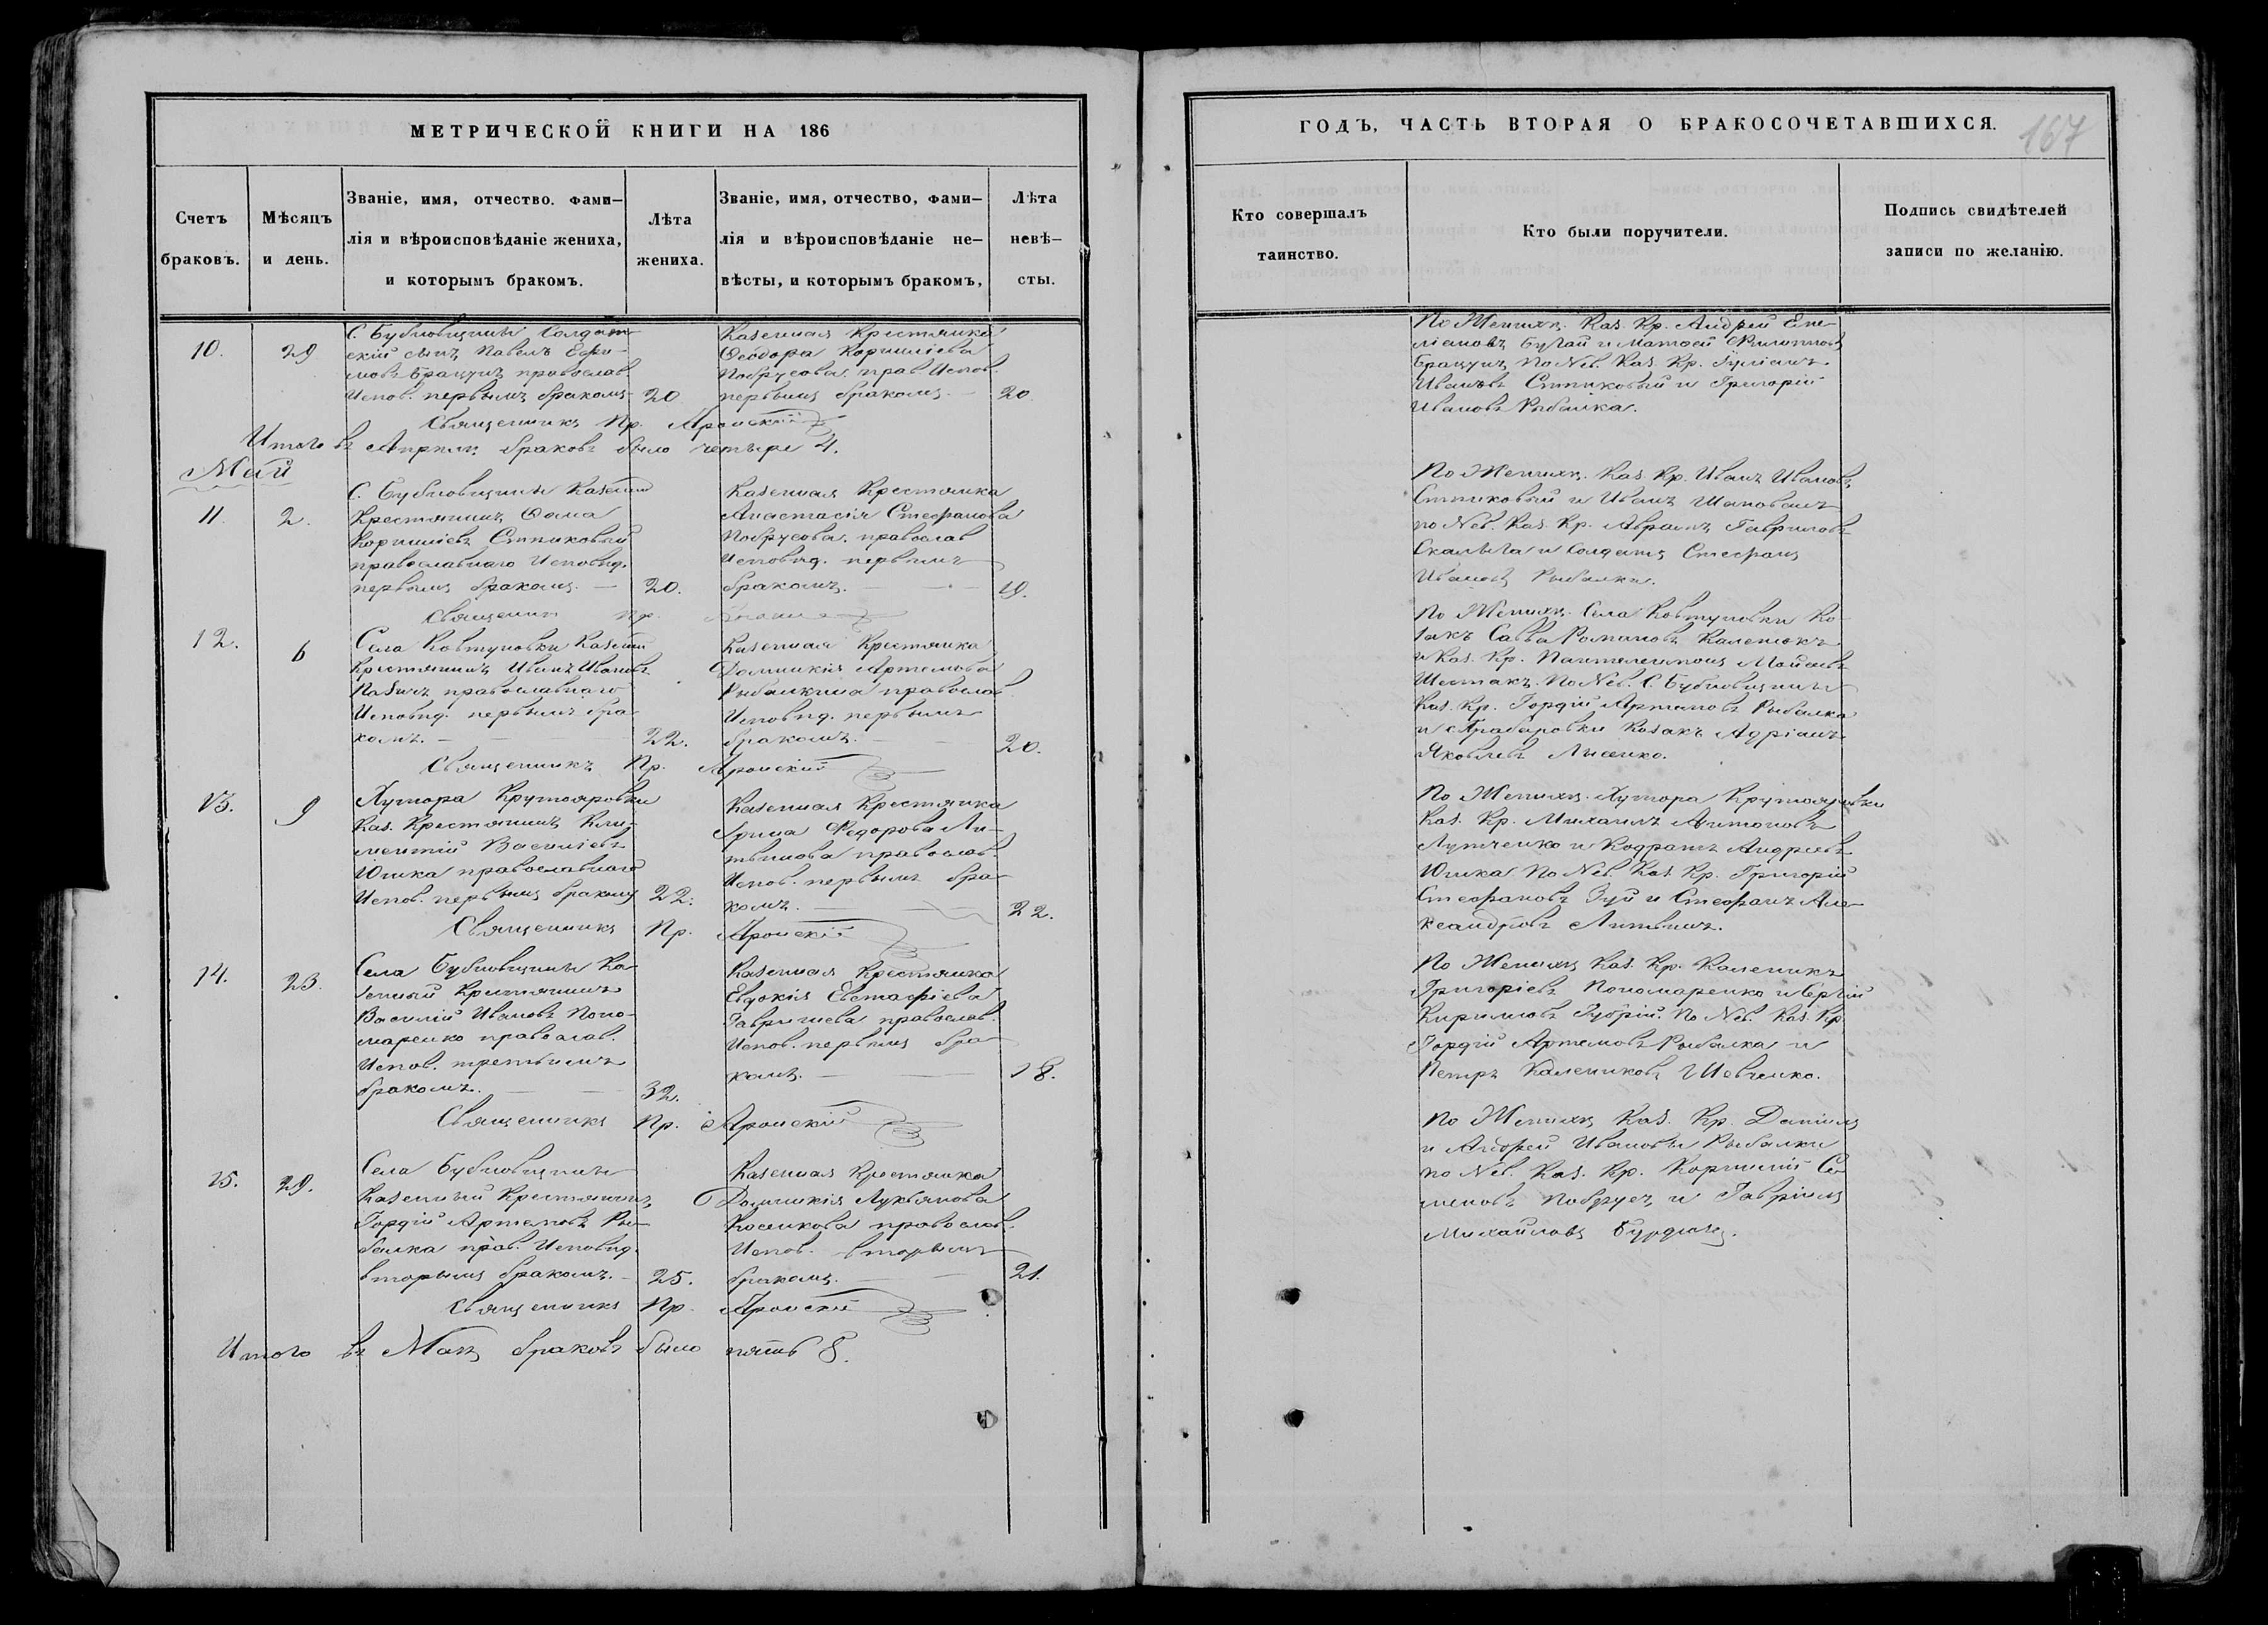 МЕТРИЧЕСКОЙ КНИГИ НА 186
Счетъ браковъ.
Мѣсяцъ и день.
Званіе, имя, отчество. фами-
лія и вѣроисповѣданіе жениха,
и которымъ бракомъ.
Лѣта жениха.
Званіе, имя, отчество, фами-
лія и вѣроисповѣданіе не-
вѣсты, и которымъ бракомъ,
Лѣта невѣ-
сты.
10.
29
С. Бубновщины Солдат-
скій сынъ Павелъ Ефи-
мовъ Брацунъ православ
Испов. первымъ бракомъ
20
Казенная Крестянка
Феодора Корниліева
Побрусова прав Испов.
первымъ бракомъ.
20
Священникъ Пр. Яронскій
Итого въ Апрелѣ браковъ было четыре 4.
Май
11.
2.
С. Бубновщины Казенный
Крестянинъ Фома
Корниліевъ Ступковый
православнаго Исповѣд.
первымъ бракомъ.
20.
Казенная Крестянка
Анастасія Стефанова
Побрусова. православ
Исповѣд. первымъ
бракомъ.
19.
Священник Пр.
12.
6
Села Ковтуновки Казенный
Крестянинъ Иванъ Ивановъ
православнаго
Исповѣд. первымъ бра-
комъ.
22.
Казенная Крестянка
Домникія Артемова
Рыбалкина православ.
Исповѣд. первымъ
бракомъ.
20.
Священникъ Пр. Яронскій
13.
9
Хутора Крутояровки
Каз. Крестянинъ Кли-
ментій Василіевъ
Юшка православнаго
Испов. первымъ бракомъ
22.
Казенная Крестянка
Ірина Федорова Ли-
твинова православ.
Испов. первымъ бра-
комъ.
22.
Священникъ Пр. Яронскій
14.
23.
Села Бубновщины Ка-
зенный Крестянинъ
Василій Ивановъ Поно-
маренко православ.
Испов. третьимъ
бракомъ.
32.
Казенная Крестянка
Евдокія Евстафіева
Гавришева православ.
Испов. первымъ бра-
комъ.
18.
Священникъ Пр. Яронскій
15.
29.
Села Бубновщины
Казенный Крестянинъ
Гордій Артемовъ Ры-
балка прав. Исповѣд.
вторымъ бракомъ.
25.
Казенная Крестянка
Домникія Лукьянова
Косенкова православ.
Испов. вторымъ
бракомъ.
21.
Священникъ Пр. Яронскій
Итого въ Маѣ браковъ было пять
ГОДЪ, ЧАСТЬ ВТОРАЯ О БРАКОСОЧЕТАВШИХСЯ.
167
Кто совершалъ таинство.
Кто были поручители.
Подпись свидѣтелей
записи по желанію.
По Женихѣ. Каз. Кр. Андрей Еме-
ліановъ Бугай и Матфей Филиповъ
Брацунъ По Нев. Каз. Кр. Іуліанъ
Ивановъ Ступковый и Григорій
Ивановъ Рыбалка.
По Женихѣ. Каз. Кр. Иванъ Ивановъ
Ступковый и Иванъ Шаповалъ
по Нев. Каз. Кр. Аврамъ Гавриловъ
Скалыга и Солдатъ Стефанъ
Ивановъ Рыбалка.
По Женихѣ. Села Ковтуновки Ко-
закъ Савва Романовъ Каленюкъ
и Каз. Кр. Пантелеимонъ
Шестакъ. По Нев. С. Бубновщины
Каз. Кр. Гордій Артемовъ Рыбалка
и Грабаровки Козакъ Адріанъ
Яковлевъ Лисенко.
По Женихѣ. Хутора Крутояровки
Каз. Кр. Михаилъ Антоновъ
Лутченко и Кодратъ Андреевъ
Юшка По Нев. Каз. Кр. Григорій
Стефановъ Зуй и Стефанъ Але-
ксандровъ Литвинъ.
По Женихѣ Каз. Кр. Каленикъ
Григоріевъ Пономаренко и Сергій
Кириловъ Губрій. По Нев. Каз. Кр.
Гордій Артемовъ Рыбалка и
Петръ Калениковъ Шевченко.
По Женихѣ Каз. Кр. Даниилъ
и Андрей Ивановы Рыбалки
по Нев. Каз. Кр. Корнилій Се-
меновъ Побрусъ и Гавріилъ
Михайловъ Бурдюгъ.